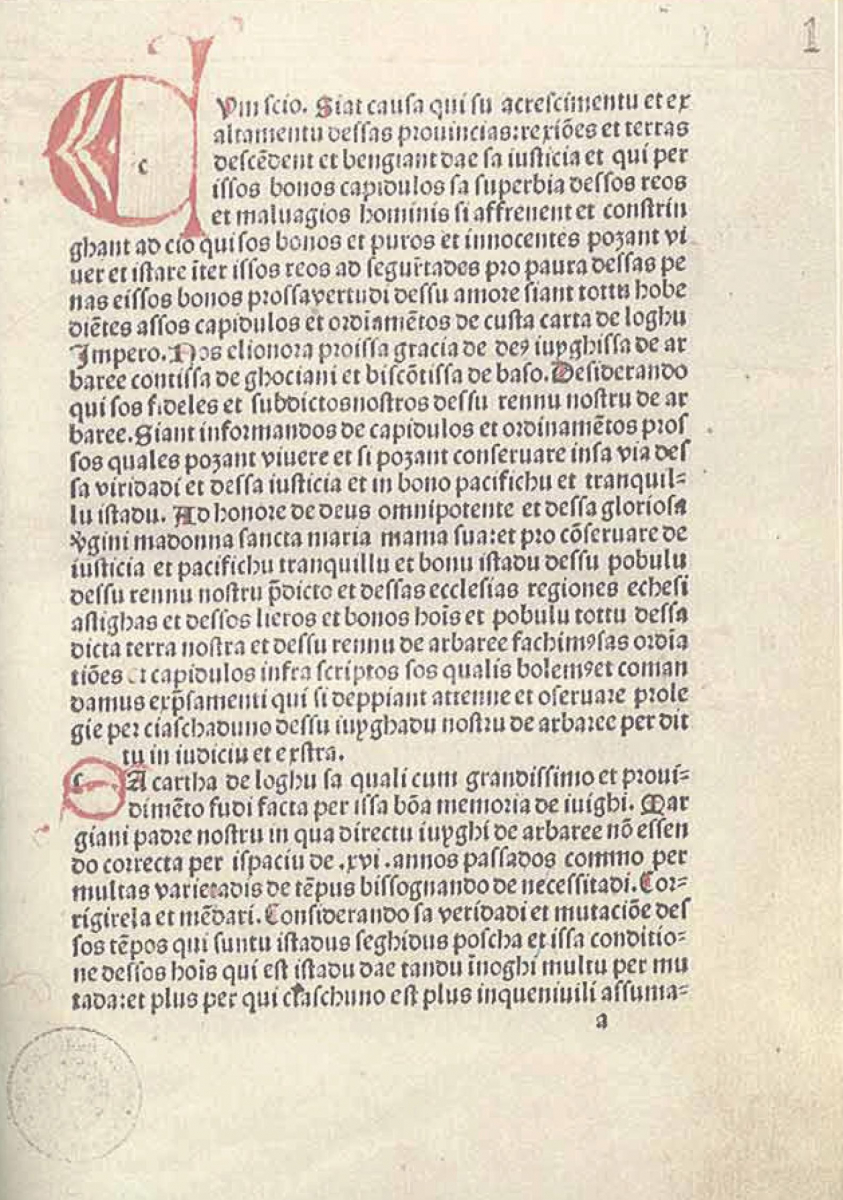 1
CVm scio. Siat causa qui su acrescimentu et ex
altamentu dessas prouincias: rexiões et terras
descẽdent et bengiant dae sa iusticia et qui per
issos bonos capidulos sa superbia dessos reos
et maluagios hominis si affrenent et constrin
ghant ad cio qui sos bonos et puros et innocentes poȝant vi
uer et istare ĩter issos reos ad segur̃tades pro paura dessas pe
nas eissos bonos prossavertudi dessu amore siant tottu hobe
diẽtes assos capidulos et ordĩamẽtos de custa carta de loghu
Jmpero. Nos elionora proissa gracia de deꝰ iuyghissa de ar
baree contissa de ghociani et biscõtissa de baso. Desiderando
qui sos fideles et subdictosnostros dessu rennu nostru de ar
baree. Siant informandos de capidulos et ordinamẽtos pros
sos quales poȝant viuere et si poȝant conseruare insa via des
sa viridadi et dessa iusticia et in bono pacifichu et tranquil=
lu istadu. Ad honore de deus omnipotente et dessa gloriosa
ṽgini madonna sancta maria mama sua: et pro cõseruare de
iusticia et pacifichu tranquillu et bonu istadu dessu pobulu
dessu rennu nostru p̃dicto et dessas ecclesias regiones echesi
astighas et dessos lieros et bonos hoĩs et pobulu tottu dessa
dicta terra nostra et dessu rennu de arbaree fachimꝰsas ordĩa
tiões et capidulos infra scriptos sos qualis bolemꝰet coman
damus exp̃samenti qui si deppiant attenne et oseruare prole
gie per ciaschaduno dessu iuyghadu nostru de arbaree per dit
tu in iudiciu et exstra.
SA cartha de loghu sa quali cum grandissimo et proui=
dimẽto fudi facta per issa bõa memoria de iuighi. Mar
giani padre nostru in qua directu iuyghi de arbaree nõ essen
do correcta per ispaciu de .xvi. annos passados commo per
multas varietadis de tẽpus bissognando de necessitadi. Cor=
rigirela et mẽdari. Considerando sa veridadi et mutaciõe des
sos tẽpos qui suntu istadus seghidus poscha et issa conditio=
ne dessos hoĩs qui est istadu dae tandu ĩnoghi multu per mu
tada: et plus per qui ciaschuno est plus inqueniuili assuma=
a